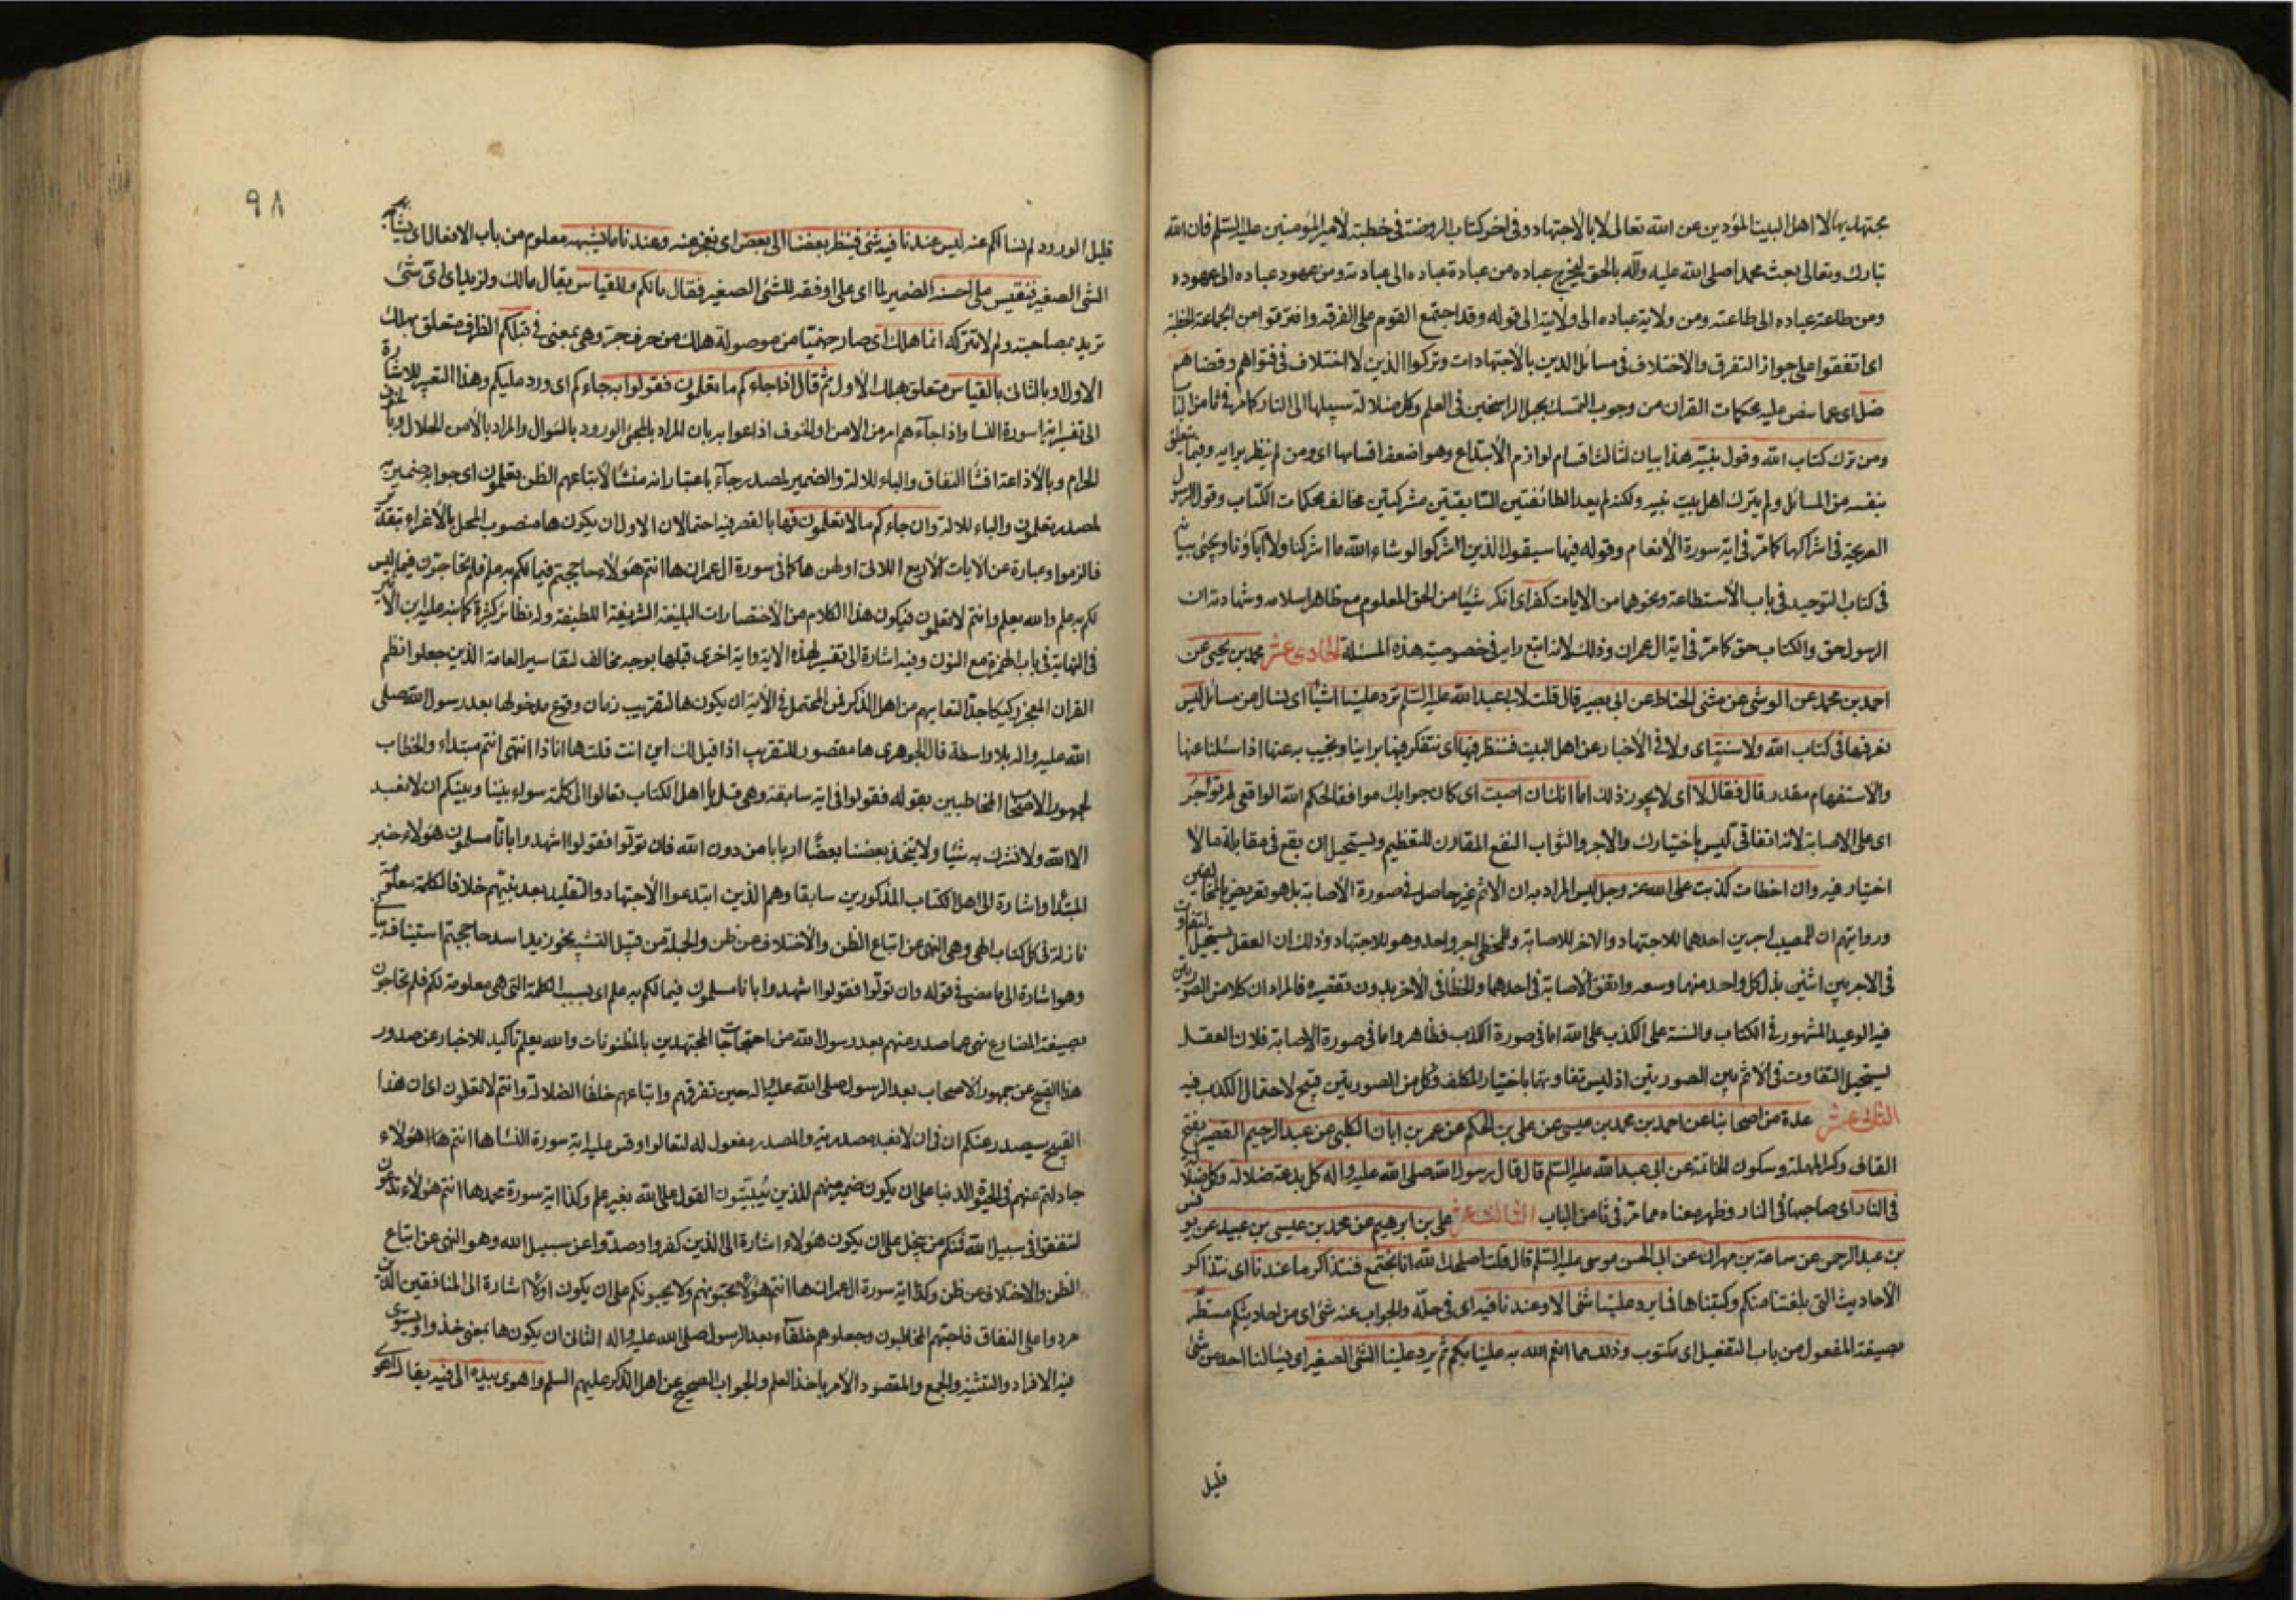 مجتهد بها الا اهل البيت المؤدين عن الله تعالى لا بالاجتهاد وفى اخر كتاب الروضة فى خطبة لامير المؤمنين عليه السلم فان الله
تبارك وتعالى بعث محمدا صلى الله عليه وآله بالحق ليخرج عباده من عبادة عباده الى عبادته ومن عهود عباده الى عهوده
ومن طاعة عباده الى طاعته ومن ولاية عباده الى ولايته الى قوله وقد اجتمع القوم على الفرقة وافترقوا عن الجماعة الخطبة
اى اتفقوا على جواز التفرق والاختلاف فى مسائل الدين بالاجتهادات وتركوا الذين لا اختلاف فى فتواهم وقضاهم
ضل اى عما نص عليه محكمات القران من وجوب التمسك بحبل الراسخين فى العلم وكل ضلالة سبيلها الى النار كما مر فى ثامن الباب
ومن ترك كتاب الله وقول نبيه هذا بيان لثالث اقسام لوازم الابتداع وهو اضعف اقسامها اى ومن لم ينظر برايه وفيما يتعلق
بنفسه من المسائل ولم يترك اهل بيت نبيه ولكنه لم يعد الطائفتين السابقتين مشركتين مخالف محكمات الكتاب وقول الرسول
الصريحة فى اشراكها كما مر فى اية سورة الانعام وقوله فيها سيقول الذين اشركوا لو شاء الله ما اشركنا ولا آباؤنا ويجئ بيانه
فى كتاب التوحيد فى باب الاستطاعة ونحوهما من الايات كفر اى انكر شيئا من الحق المعلوم مع ظاهر اسلامه وشهادته ان
الرسول حق والكتاب حق كما مر فى اية ال عمران وذلك لانه اتبع رايه فى خصوصية هذه المسئلة الحادى عشر محمد بن يحيى عن
احمد بن محمد عن الوشى عن مثنى الحناط عن ابى بصير قال قلت لابى عبد الله عليه السلم ترد علينا اشيأ اى نسال من مسائل ليس
نعرفها فى كتاب الله ولا سنته اى ولا فى الاخبار عن اهل البيت فننظر فيها اى نتفكر فيها براينا ونجيب به عنها اذا سئلنا عنها
والاستفهام مقدر قال فقال لا اى لا يجوز ذلك اما انك ان اصبت اى كان جوابك موافقا لحكم الله الواقعى لم تؤجر
اى على الاصابة لانه اتفاقى ليس باختيارك والاجر والثواب النفع المقارن للتعظيم ويستحيل ان يقع فى مقابلة ما لا
اختيار فيه وان اخطات كذبت على الله عز وجل ليس المراد به ان الاثم غير حاصل فى صورة الاصابة بل هو تعريض بالمخالفين
وروايتهم ان للمصيب اجرين احدهما للاجتهاد والاخر للاصابة وللمخطى اجر واحد وهو للاجتهاد وذلك ان العقل يستحيل التفاوت
فى الاجر بين اثنين بذل كل واحد منهما وسعه واتفق الاصابة فى احدهما والخطأ فى الاخر بدون تقصيره فالمراد ان كلا من الصورتين
فيه الوعيد المشهور فى الكتاب والسنة على الكذب على الله اما فى صورة الكذب فظاهر واما فى صورة الاصابة فلان العقل
يستحيل التفاوت فى الاثم بين الصورتين اذ ليس تفاوتهما باختيار المكلف وكل من الصورتين قبيح لاحتمال الكذب فيه
الثانى عشر عدة من اصحابنا عن احمد بن محمد بن عيسى عن على بن الحكم عن عمر بن ابان الكلبى عن عبد الرحيم القصير بفتح
القاف وكسر المهملة وسكون الخاتمة عن ابى عبد الله عليه السلم قال قال رسول الله صلى الله عليه واله كل بدعة ضلالة وكل ضلالة
فى النار اى صاحبها فى النار وظهر معناه مما مر فى ثامن الباب الثالث عشر على بن ابرهيم عن محمد بن عيسى بن عبيد عن يونس
بن عبد الرحمن عن سماعة بن مهران عن ابى الحسن موسى عليه السلم قال قلت اصلحك الله انا نجتمع فنتذاكر ما عندنا اى نتذاكر
الاحاديث التى بلغتنا منكم وكتبناها فما يرد علينا شئ الا وعندنا فيه اى فى حله والجواب عنه شئ اى من احاديثكم مسطر
بصيغة المفعول من باب التفعيل اى مكتوب وذلك مما انعم الله به علينا بكم ثم يرد علينا الشئ الصغير اى يسالنا احد من شئ
قليل
٩٨
قليل الورود لم نسالكم عنه ليس عندنا فيه شئ فينظر بعضنا الى بعض اى نعجز عنه وعندنا ما يشبهه معلوم من باب الافعال اى يشابه
الشئ الصغير فنقيس على احسنه الضمير لما اى على اوفقه للشئ الصغير فقال مالكم وللقياس يقال مالك ولزيد اى اى شئ
تريد بمصاحبته ولم لا تتركه انما هلك اى صار جهنميا من موصولة هلك من حرف جر وهى بمعنى فى قبلكم الظرف متعلق بهلك
الاول وبالثانى بالقياس متعلق بهلك الاول ثم قال اذا جاءكم ما تعلمون فقولوا به جاءكم اى ورد عليكم وهذا التعبير للاشارة
الى تفسير اية سورة النسا واذا جاءهم امر من الامن او الخوف اذاعوا به بان المراد بالمجئ الورود بالسؤال والمراد بالامن الحلال وبالخوف
الحرام وبالاذاعة افشأ النفاق والباء للالة والضمير لمصدر جآء باعتبار انه منشأ لاتباعهم الظن تعلمون اى جوابه ضمير به
لمصدر تعلمون والباء للالة وان جاءكم ما لا تعلمون فها بالقصر فيه احتمالان الاول ان يكون ها منصوب المحل بالاغراء بتقدير
فالزموا وعبارة عن الايات الاربع اللاتى اولهن ها كما فى سورة ال عمران ها انتم هؤلاء حاججتم فيما لكم به علم فلم تحاجون فيما ليس
لكم به علم والله يعلم وانتم لا تعلمون فيكون هذا الكلام من الاختصارات البليغة الشريفة اللطيفة وله نظائر كثيرة كما نبه عليه ابن الاثير
فى النهاية فى باب الهمزة مع النون وفيه اشارة الى تفسير لهذه الاية واية اخرى قبلها بوجه مخالف لتفاسير العامة الذين جعلوا نظم
القران المعجز ركيكا جدا لتعاميهم من اهل الذكر فمن المحتمل فى الاية ان يكون ها لتقريب زمان وقوع مدخولها بعد رسول الله صلى
الله عليه واله بلا واسطة قال الجوهرى ها مقصور للتقريب اذا قيل لك اين انت قلت ها انا ذا انتهى انتم مبتداء والخطاب
لجمهور الاصحاب المخاطبين بقوله فقولوا فى اية سابقة وهى قل يا اهل الكتاب تعالوا الى كلمة سواء بيننا وبينكم ان لا نعبد
الا الله ولا نشرك به شيئا ولا يتخذ بعضنا بعضا اربابا من دون الله فان تولوا فقولوا اشهدوا بانا مسلمون هؤلاء خبر
المبتدأ واشارة الى اهل الكتاب المذكورين سابقا وهم الذين ابتدعوا الاجتهاد والتقليد بعد نبيهم خلافا لكلمة معلومة
نازلة فى كل كتاب الهى وهى النهى عن اتباع الظن والاختلاف عن ظن والجملة من قبيل التشبيه نحو زيد اسد حاججتم استيناف بيانى
وهو اشارة الى ما مضى فى قوله وان تولوا فقولوا اشهدوا بانا مسلمون فيما لكم به علم اى بسبب الكلمة التى هى معلومة لكم فلم تحاجون
بصيغة المضارع نهى عما صدر عنهم بعد رسول الله من احتجاجات المجتهدين بالمظنونات والله يعلم تاكيد للاخبار عن صدور
هذا القبيح عن جمهور الاصحاب بعد الرسول صلى الله عليه واله حين تفرقهم واتباعهم خلفأ الضلالة وانتم لا تعلمون اى ان هذا
القبيح سيصدر عنكم ان فى ان لا نعبد مصدرية والمصدر مفعول له لتعالوا وقس عليه اية سورة النسا ها انتم هؤلاء
جادلتم عنهم فى الحيوة الدنيا على ان يكون ضمير عنهم للذين يبيتون القول على الله بغير علم وكذا اية سورة محمد ها انتم هؤلاء تدعون
لتنفقوا فى سبيل الله فمنكم من يبخل على ان يكون هؤلاء اشارة الى الذين كفروا وصدوا عن سبيل الله وهو النهى عن اتباع
الظن والاختلاف عن ظن وكذا اية سورة ال عمران ها انتم اولاء تحبونهم ولا يحبونكم على ان يكون اولاء اشارة الى المنافقين الذين
مردوا على النفاق فاحبهم المخاطبون وجعلوهم خلفآء بعد الرسول صلى الله عليه واله الثانى ان يكون ها بمعنى خذوا ويستوى
فيه الافراد والتثنية والجمع والمقصود الامر باخذ العلم والجواب الصحيح عن اهل الذكر عليهم السلم واهوى بيده الى فيه يقال اهوى